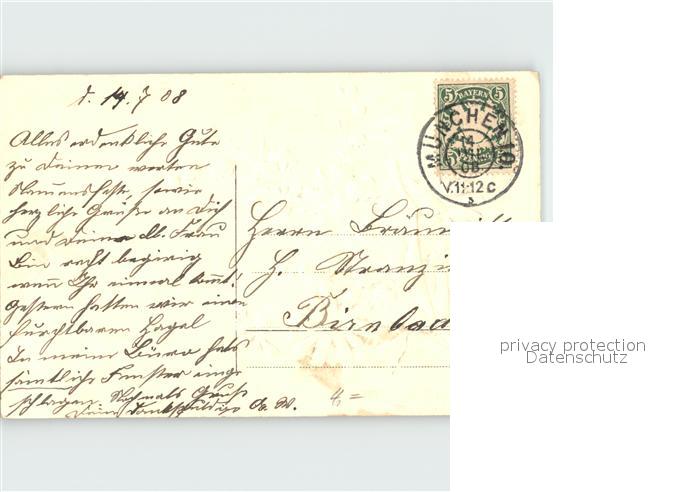 d. 14.7 08
Alles erdenkliche Gute
zu Deinem werten
Namensfeste, sowie
herzliche Grüße an Dich
und Deine lb. Frau
Bin recht begierig
wenn Ihr einmal kommt!
Gestern hatten wir einen
furchtbaren Hagel
In meinem Büro hats
sämtliche Fenster einge
schlagen. Nochmals Gruß
Dein
5 BAYERN 5
MÜNCHEN 10.
14.
08
V.11-12 C
s
Herrn
H.
4,=
privacy protection
Datenschutz